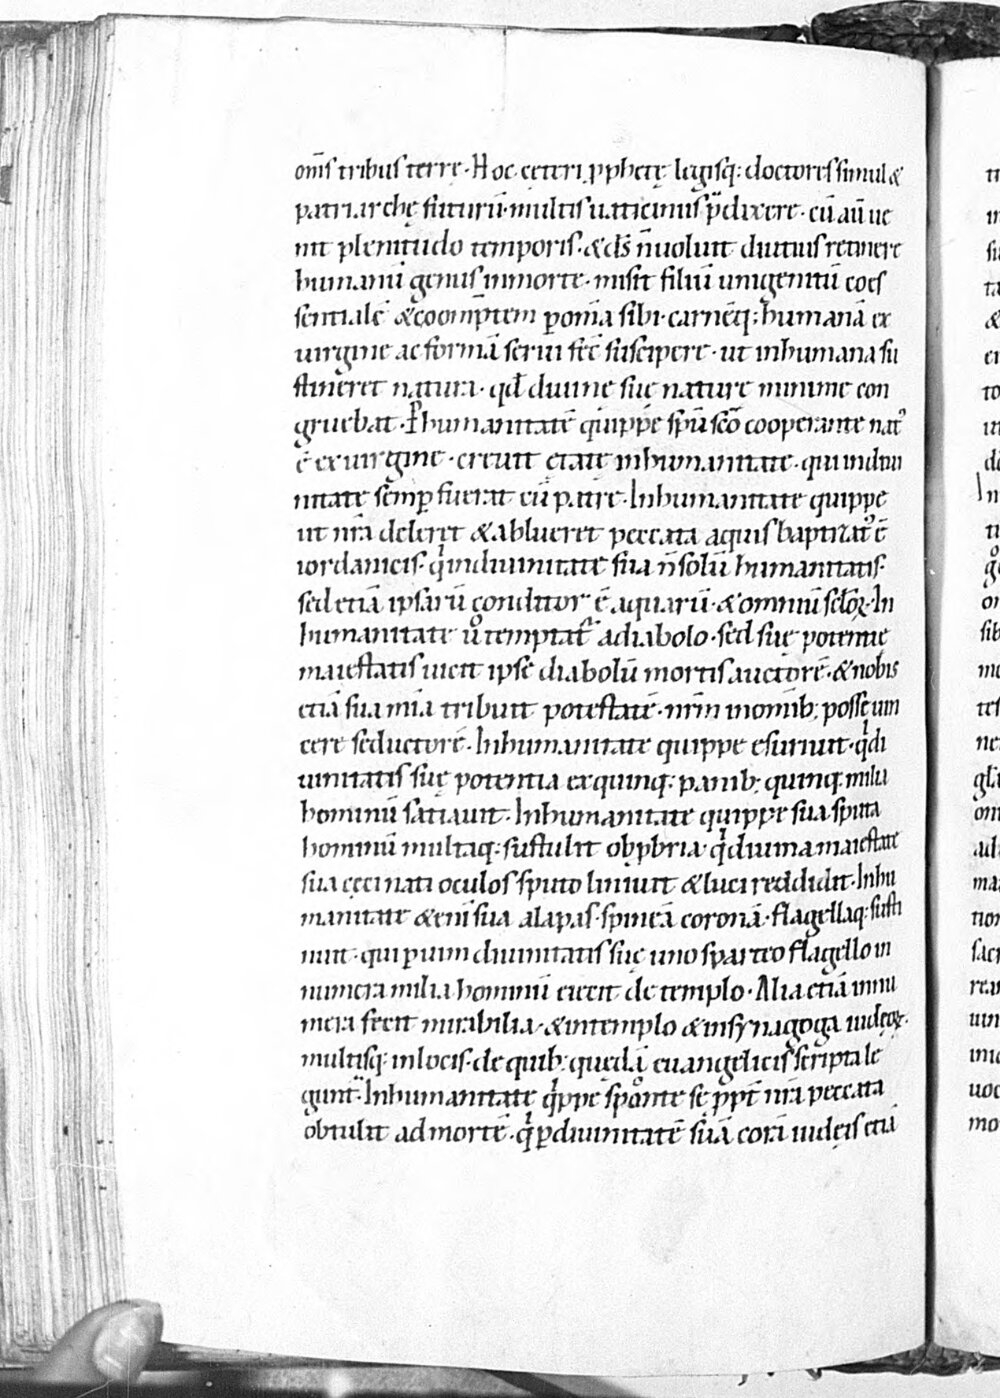 om̅s tribus terre. Hoc ceteri ꝓphetę legisq; doctores simul &
patriarchę futurū multis uaticiniis p̅dixere. cū aū ue
nit plenitudo temporis. & ds̅ n̅ uoluit diutius retinere
humanū genus in morte. misit filiū unigenitū coes
sentialē & coomp̅tem ꝑ om̅a sibi. carnēq; humanā ex
uirgine ac formā serui fec̅ suscipere. ut in humana su
stineret natura. qd̅ diuine suę nature minime con
gruebat. P humanitatē quippe spū sc̅o cooperante nat᾽
ē ex uirgine. creuit ętate in humanitate. qui in diui
nitate semꝑ fuerat cū patre. In humanitate quippe
ut nr̅a deleret & ablueret peccata aquis baptizat᾽ ē
iordanicis. qͥ in diuinitate sua n̅ solū humanitatis
sed etiā ipsarū conditor ē aquarū. & omniū sclo̅ꝝ. In
humanitate uͦ temptat᷑ a diabolo. sed suę potentie
maiestatis uicit ipse diabolū mortis auctorē. & nobis
etiā sua mi̅a tribuit potestatē. nr̅m in omīb; posse uin
cere seductorē. In humanitate quippe esuriuit. qͥ di
uinitatis suę potentia ex quinq; panib; quinq; milia
hominū satiauit. In humanitate quippe sua sputa
hominū multaq; sustulit obꝓbria. qͥ diuina maiestate
sua cęci nati oculos sputo liniuit & luci reddidit. In hu
manitate & eni̅ sua alapas. spineā coronā. flagellaq; susti
nuit. qui ꝑ uim diuinitatis suę uno sparteo flagello in
numera milia hominū eiecit de templo. Alia etiā innu
mera fecit mirabilia. & in templo & in synagoga iudęoꝝ.
multisq; in locis. de quib; quędā euangelicis scripta le
gunt᷑. In humanitate qͥppe sponte se ꝓpt̅ nr̅a peccata
obtulit ad mortē. qͥ ꝑ diuinitatē suā corā iudęis etiā